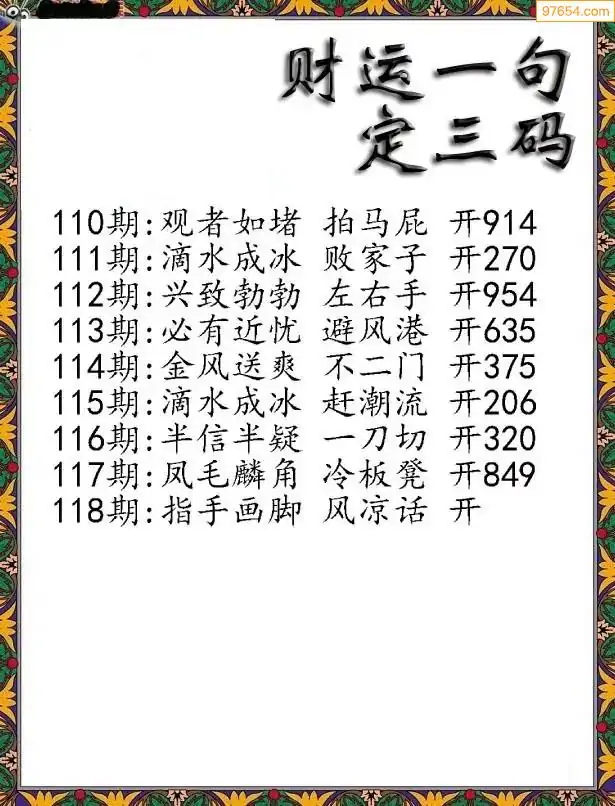 97654.com
财运一句
定三码
110期:观者如堵 拍马屁 开914
111期:滴水成冰 败家子 开270
112期:兴致勃勃 左右手 开954
113期:必有近忧 避风港 开635
114期:金风送爽 不二门 开375
115期:滴水成冰 赶潮流 开206
116期:半信半疑 一刀切 开320
117期:凤毛麟角 冷板凳 开849
118期:指手画脚 风凉话 开